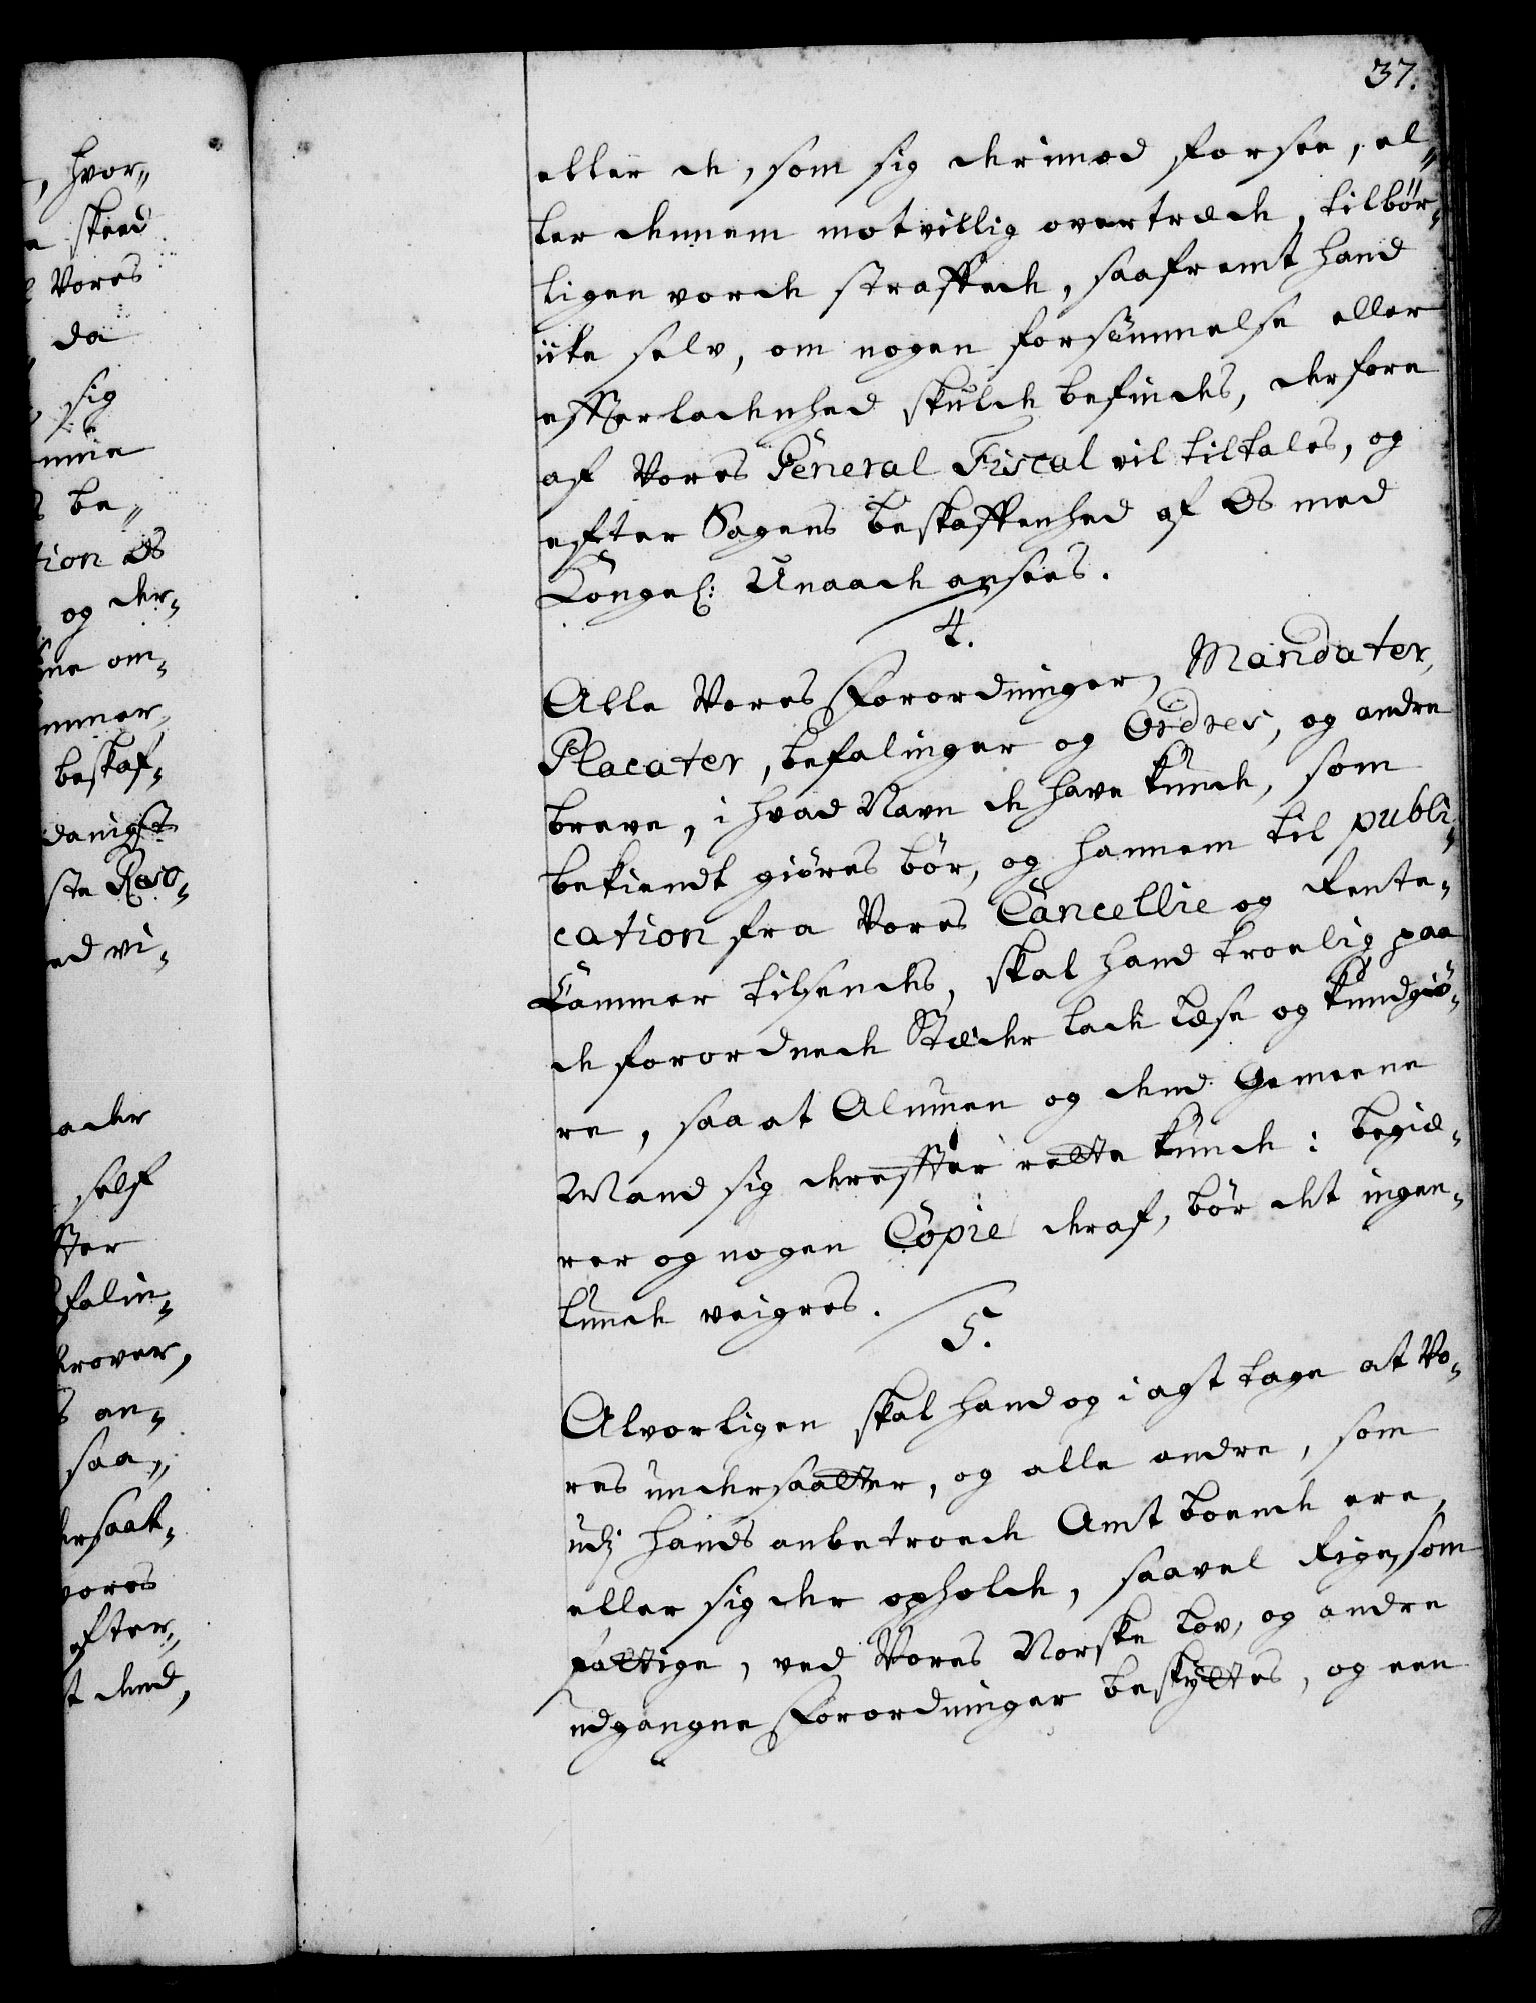 37.
eller de, som sig derimod forsee, el„
ler dennem motvillig overtræde, tilbør„
ligen vorde straffede, saafremt hand
iike selv, om nogen forsømmelse eller
efterladenhed skulde befindes, derfore
af Vores General Fiscal vil tiltales, og
efter Sagens beskaffenhed af Os med
Kongel: Unaade ansees.
4.
Alle Vores Forordninger, Mandater,
Placater, befalinger og Ordres, og andre
breve, i hvad Navn de have kunde, som
bekiendt giøres bør, og hannem til publi„
cation fra Vores Cancellie og Rente„
Cammer tilsendes, skal hand troelig paa
de forordnede Stæder lade læse og kundgiø„
re, saa at Almuen og dend Gemeene
Mand sig derefter rette kunde: begiæ„
rer og nogen Copie deraf, bør det ingen„
lunde veigres.
5.
Alvorligen skal hand og i agt tage at Vo„
res undersaatter, og alle andre, som
udj hands anbetroede Amt boende ere,
eller sig der opholde, saavel Rige, som
fattige, ved Vores Norske Lov, og andre
udgangne Forordninger beskyttes, og een
, hvor„
skeed
Vores
da
sig
be„
tion Os
og der„
om„
beskaf„
danigst
ste Reso„
ed vi„
ader
self
fter
falin„
prover,
an„
saa„
ersaat„
vores
efter„
t dend,